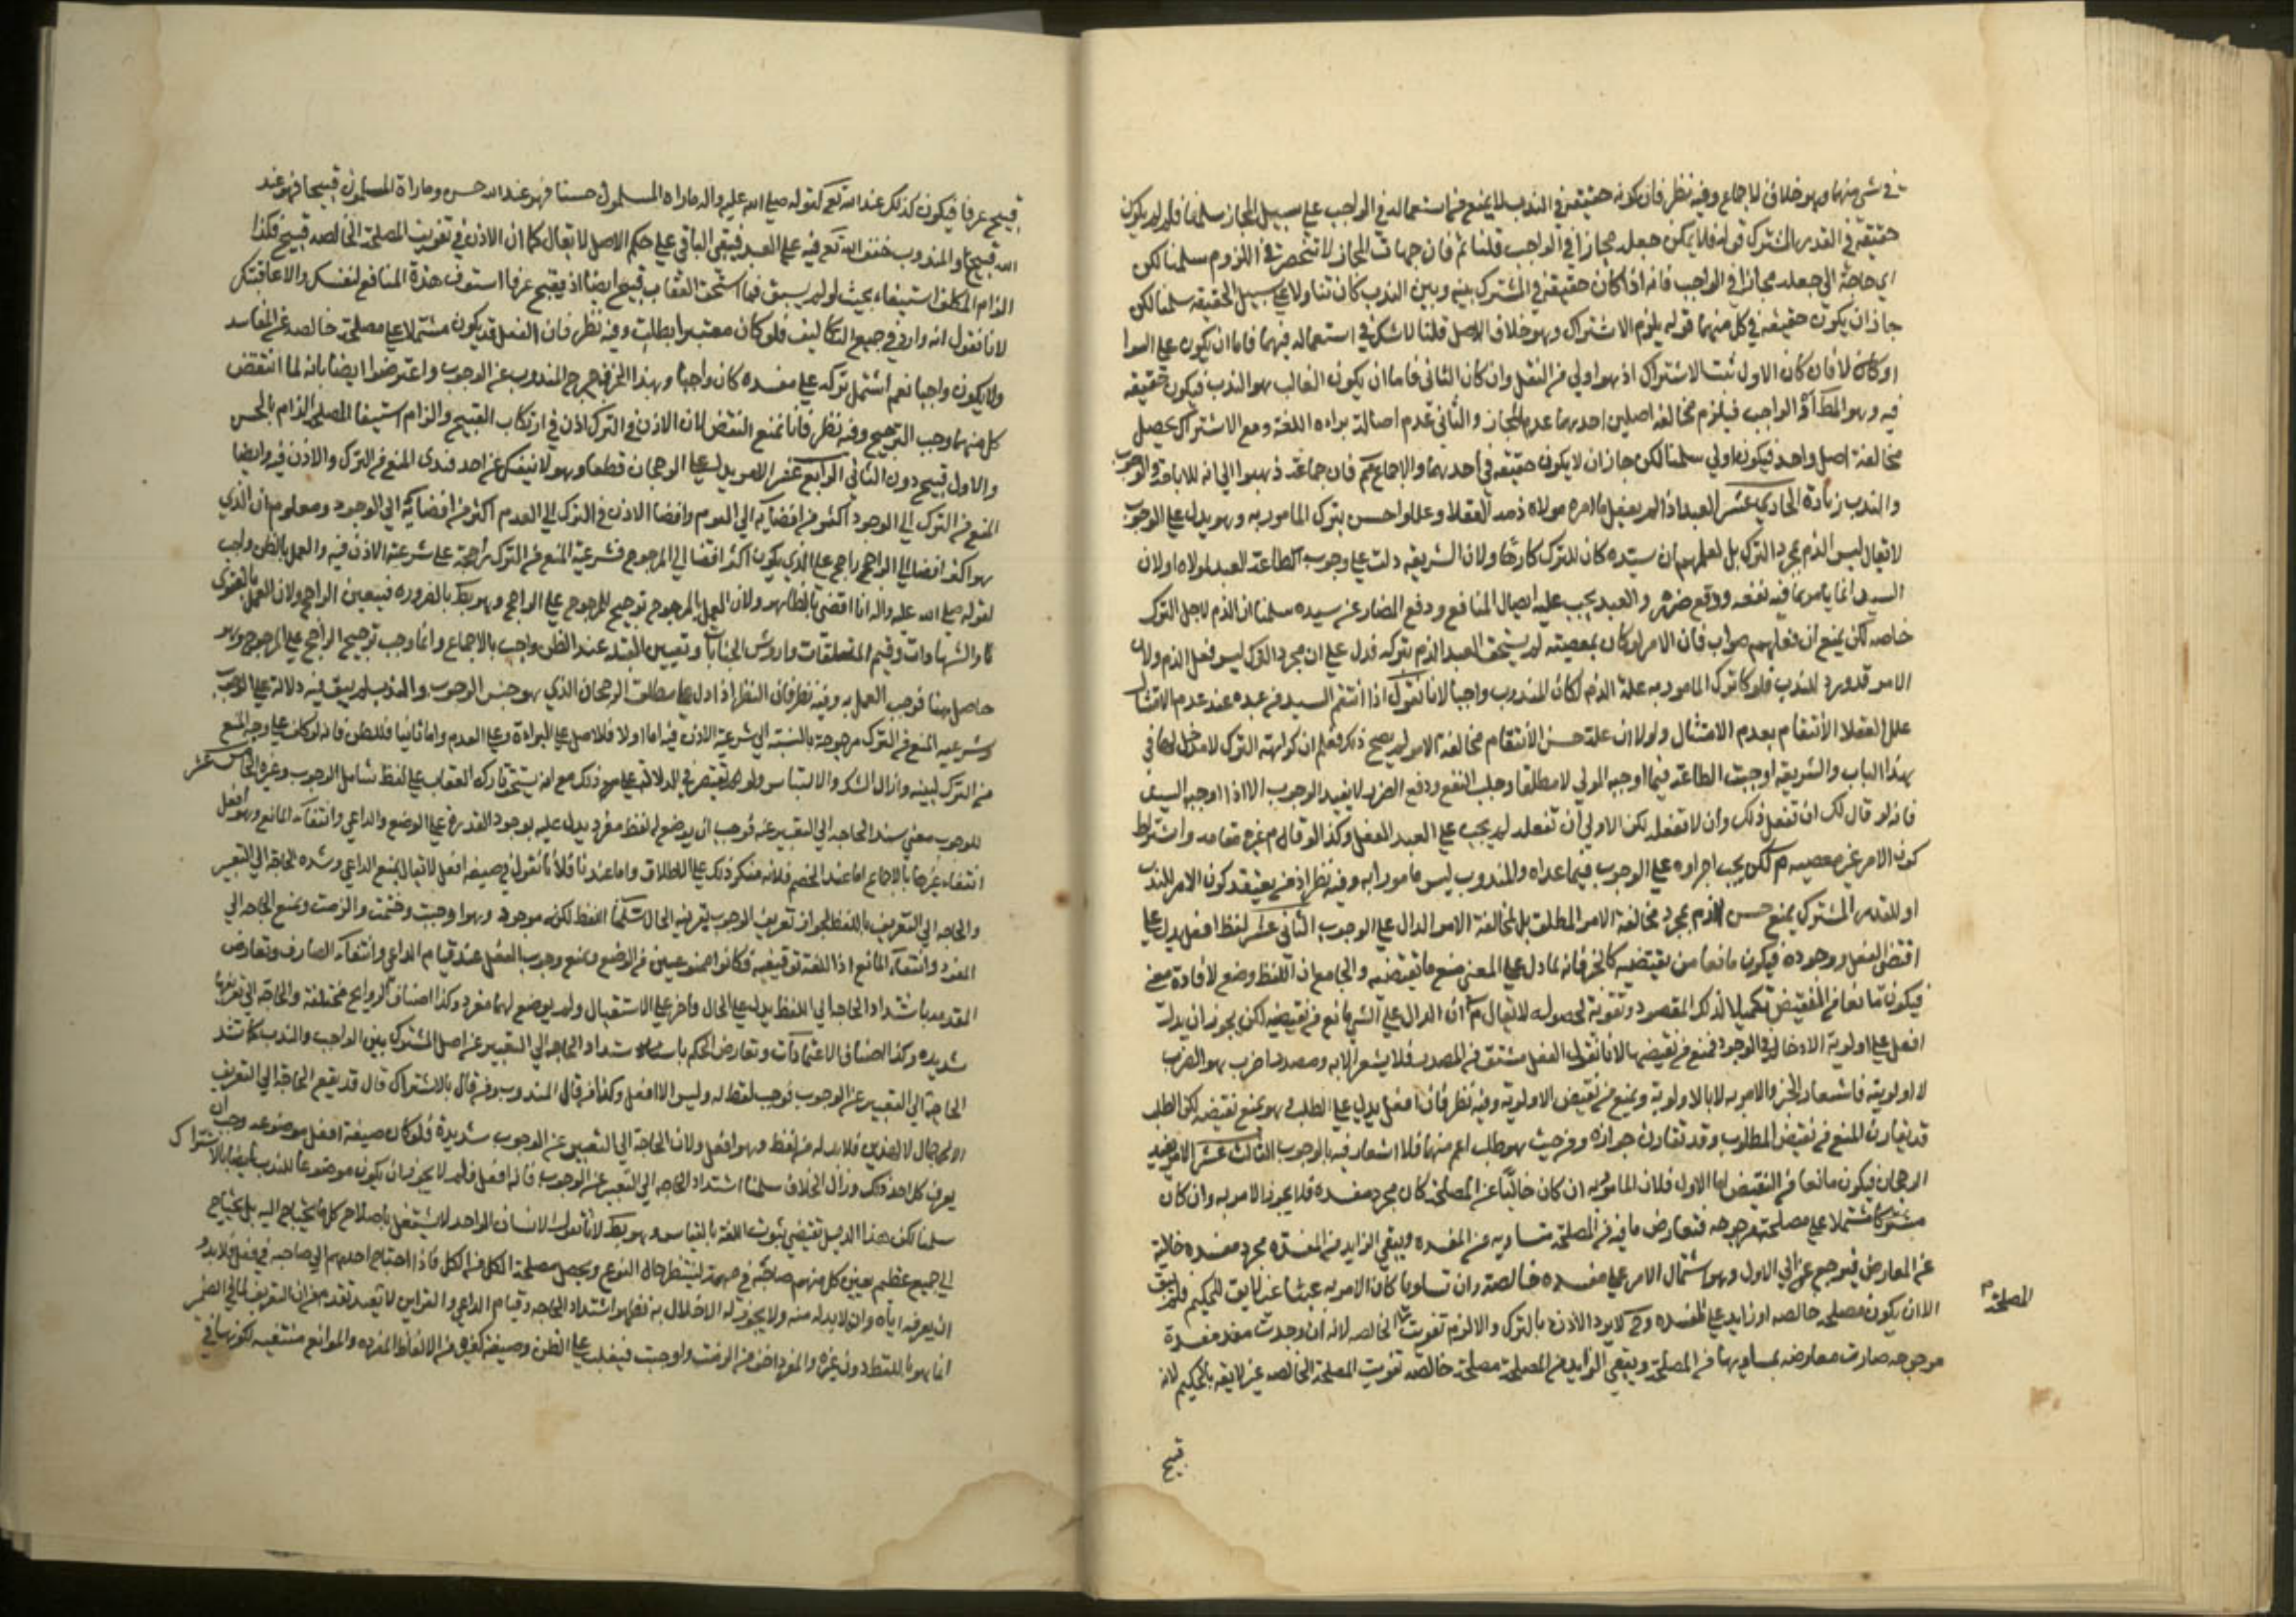 في شي منهما وهو خلاف الاجماع وفيه نظر فان كونه حقيقة في الندب لا يمنع من استعماله في الواجب على سبيل المجاز سلمنا فلم لم يكون
حقيقة في القدر المشترك قوله فلا يمكن جعله مجازا في الواجب قلنا ثم فان جهات المجاز لا تنحصر في اللزوم سلمنا لكن
اي حاجة الى جعله مجازا في الواجب فانه اذا كان حقيقة في المشترك بينه وبين الندب كان تناولا على سبيل الحقيقة سلمنا لكن
جاز ان يكون حقيقة في كل منهما قوله يلزم الاشتراك وهو خلاف الاصل قلنا لا شك في استعماله فيهما فاما ان يكون على السوا
او لا فان كان الاول ثبت الاشتراك اذ هو اولى من النقل وان كان الثاني فاما ان يكون الغالب هو الندب فيكون حقيقة
فيه وهو المط او الواجب فيلزم مخالفة اصلين احدهما عدم المجاز والثاني عدم اصالة براءه اللغة ومع الاشتراك يحصل
مخالفة اصل واحد فيكون اولى سلمنا لكن جاز ان لا يكون حقيقة في احدهما والاجماع مم فان جماعة ذهبوا الى انه للاباحة والوجوب
والندب زيادة الحادي عشر العبد اذا لم يفعل ما امره مولاه ذمه العقلا وعللوا حسن بترك المامور به وهو يدل على الوجوب
لا يقال ليس الذم بمجرد الترك بل لعلمهم ان سيده كان للترك كارها ولان الشريعة دلت على وجوب طاعة العبد لمولاه اولان
السيد انما يامر بما فيه نفعه ودفع ضرره والعبد يجب عليه ايصال المنافع ودفع المضار عن سيده سلمنا ان الذم لاجل الترك
خاصه لكن يمنع ان فعلهم صواب فان الامر لو كان بمعصيته لم يستحق العبد الذم بتركه فدل على ان مجرد الترك ليس فعل الذم ولان
الامر قد ورد للندب فلو كان ترك المامور به علة الذم لكان المندوب واجبا لانا نقول اذا انتقم السيد من عبده عند عدم الامتثال
علل العقلا الانتقام بعدم الامتثال ولولا ان علة حسن الانتقام مخالفة الامر لم يصح ذلك فعلم ان كراهة الترك لا مدخل لها في
هذا الباب والشريعة اوجبت الطاعة فيما اوجبه المولى لا مطلقا وجلب النفع ودفع الضرر لا يفيد الوجوب الا اذا اوجبه السيد
فانه لو قال لك ان تفعل ذلك وان لا تفعله لكن الاولى ان تفعله لم يجب على العبد الفعل وكذا لو قام غيره مقامه واشتراط
كون الامر غير معصيه م لكن يجب اجراوه على الوجوب فيما عداه والمندوب ليس مامورا به وفيه نظر اذ من يعتقد كون الامر للندب
او للقدر المشترك يمنع حسن الذم بمجرد مخالفة الامر المطلق بل لمخالفة الامر الدال على الوجوب الثاني عشر لفظ افعل يدل على
اقتضى الفعل ووجوده فيكون مانعا من نقيضه كالخبر فانه لما دل على المعنى منع ما نقيضه والجامع ان اللفظ وضع لافادة معنى
فيكون مانعا من النقيض تكميلا لذلك المقصود وتقوية لحصوله لا يقال م ان الدال على الشي مانع من نقيضه لكن يجوز ان يدل
افعل على اولوية الادخال في الوجود فمنع من نقيضها لانا نقول الفعل مشتق من المصدر فلا يشعر الا به ومصدر اضرب هو الضرب
لا اولويته فاشعار الخبر والامر به لا بالاولوية ويمنع من نقيض الاولوية وفيه نظر فان افعل يدل على الطلب وهو يمنع نقيضه لكن الطلب
قد يقارن المنع من نقيض المطلوب وقد تقارن جوازه ومن حيث هو طلب اعم منهما فلا اشعار فيه بالوجوب الثالث عشر الامر يفيد
الرجحان فيكون مانعا من النقيض اما الاول فلان المامور به ان كان خاليا عن المصلحة كان مجرد مفسدة فلا يجوز الامر به وان كان
مشتملا على مصلحة مرجوحه فتعارض ما فيه من المصلحة تساويه من المفسده ويبقى الزايد من المفسدة مجرد مفسده خالية
عن المعارض فيرجع الى الاول وهو اشتمال الامر على مفسده خالصة وان تساويا كان الامر به عبثا غير لايق للحكيم فلم يبق
الا ان يكون مصلحه خالصه او زايد على المفسده وح لا يرد الاذن بالترك والا لزم تفويت المصلحة الخالصه لانه ان وجدت مفسدة
مرجوحه صارت معارضه بمساويها من المصلحة ويبقى الزايد من المصلحة مصلحة خالصه تفويت المصلحة الخالصه غير لايقه بالحكيم لانه
المصلحة م
قبيح
قبيح عرفا فيكون كذلك عند الله تع كقوله صلى الله عليه واله ما راه المسلمون حسنا فهو عند الله حسن وما راه المسلمون قبيحا فهو عند
الله قبيح والمندوب خفف الله تع فيه على العبد فيبقى الباقي على حكم الاصل لا يقال كما ان الاذن في تفويت المصلحة الخالصه قبيح فكذا
الزام المكلف استيفاء بحيث لو لم يستوفها استحق العقاب قبيح ايضا اذ يقبح عرفا استوف هذة المنافع لنفسك والا عاقبتك
لانا نقول انه وارد في جميع التكاليف فلو كان معتبرا بطلت وفيه نظر فان الفعل قد يكون مشتملا على مصلحة خالصه عن المفاسد
ولا يكون واجبا نعم اشتمل تركه على مفسده كان واجبا وبهذا الحرف خرج المندوب عن الوجوب واعترضوا ايضا بانه لما انتقض
كل منهما وجب الترجيح وفيه نظر فانا نمنع النقض لان الاذن في الترك اذن في ارتكاب القبيح والزام استيفا المصلحة الزام بالحسن
والاول قبيح دون الثاني الرابع عشر الامر يدل على الرجحان قطعا وهو لا ينفك عن احد قيدي المنع من الترك والاذن فيه وايضا
المنع من الترك الى الوجود اكثر من افضايه الى العدم وافضا الاذن في الترك الى العدم اكثر من افضايه الى الوجود ومعلوم ان الذي
هو اكثر افضا الى الراجح راجح على الذي يكون اكثر افضا الى المرجوح فشرعية المنع من الترك راجحة على شرعية الاذن فيه والعمل بالظن واجب
لقوله صلى الله عليه واله انا اقضي بالظاهر ولان العمل بالمرجوح ترجيح للمرجوح على الراجح وهو بط بالضروره فيتعين الراجح ولان العمل بالفتوى
والشهادات وقيم المتعلقات واروش الجنايات وتعيين القبله عند الظن واجب بالاجماع وانما وجب ترجيح الراجح على المرجوح وهو
حاصل هنا فوجب العمل به وفيه نظر فان النظر اذا دل على مطلق الرجحان الذي هو جنس الوجوب والندب لم يبق فيه دلالة على الوجوب
وشرعيه المنع من الترك مرجوحة بالنسبة الى شرعية الاذن فيه اما اولا فلاصل على البراءة وعلى العدم واما ثانيا فللظن فانه لو كلف على وجه المنع
من الترك لبينه وازال الشك والالتباس ولو لم يقتصر في الدلالة على ذلك مع انه يستحق تاركه العقاب على لفظ شامل الوجوب وغيره الخامس عشر
للوجوب معنى تشتد الحاجه الى التعبير عنه فوجب ان يوضع له لفظ مفرد يدل عليه لوجود القدرة على الوضع والداعي وانتفاء المانع وهو افعل
انتفاء غيرها بالاجماع اما عند الخصم فلانه منكر ذلك على الاطلاق واما عندنا فلانا نقول في صيغة افعل لا يقال يمنع الداعي وشدة الحاجة الى التعبير
والحاجه الى التعريف باللفظ لجواز تعريف الوجوب بقرينه الحال سلمنا اللفظ لكنه موجود وهو اوجبت وحتمت والزمت ويمنع الحاجه الى
المفرد وانتفاء المانع اذ اللغة توقيفية فكانوا ممنوعين من الوضع ويمنع وجوب الفعل عند قيام الداعي وانتفاء الصارف وتعارض
المقدمه باشتداد الحاجه الى اللفظ يدل على الحال واخر على الاستقبال ولم يوضع لهما مفرد وكذا اصناف الروايح مختلفة والحاجة الى تعريفها
شديده وكذا اصناف الاعتمادات وتعارض الحكم باشتداد الحاجه الى التعبير عن اصل المشترك بين الواجب والندب كاشتداد
الحاجة الى التعبير عن الوجوب فوجب لفظ له وليس الا افعل وكذا من قال المندوب ومن قال بالاشتراك قال قد يقع الحاجة الى التعريف
الاجمال لا لضدين فلا بد له من لفظ وهو افعل ولان الحاجة الى التعبير عن الوجوب شديدة فلو كان صيغة افعل موضوعه وجب ان
يعرف كل احد ذلك وزال الخلاف سلمنا اشتداد الحاجه الى التعبير عن الوجوب فانه افعل فلم لا يجوز ان يكون موضوعا للندب ايضا بالاشتراك
سلمنا لكن هذا الدليل يقتضي ثبوت اللغة بالقياس وهو بط لانا نقول الانسان الواحد لا يستقل باصلاح كل ما يحتاج اليه بل يحتاج
الى جمع عظيم يعين كل منهم صاحبه في مهمه لينتظم حال النوع ويحصل مصلحة الكل من الكل فاذا احتاج احدهم الى صاحبه في فعل فلا بد و
ان يعرفه اياه وان لا بد له منه ولا يجوز له الاخلال به فظهر اشتداد الحاجه وقيام الداعي والقراين لا تفيد لما تقدم من ان التعريف لما في الضمير
انما هو باللفظ دون غيره والمفرد اخف من الزمت واوجبت فيغلب على الظن وضعه كغيره من الالفاظ المفرده والموانع منتفيه لكونها في